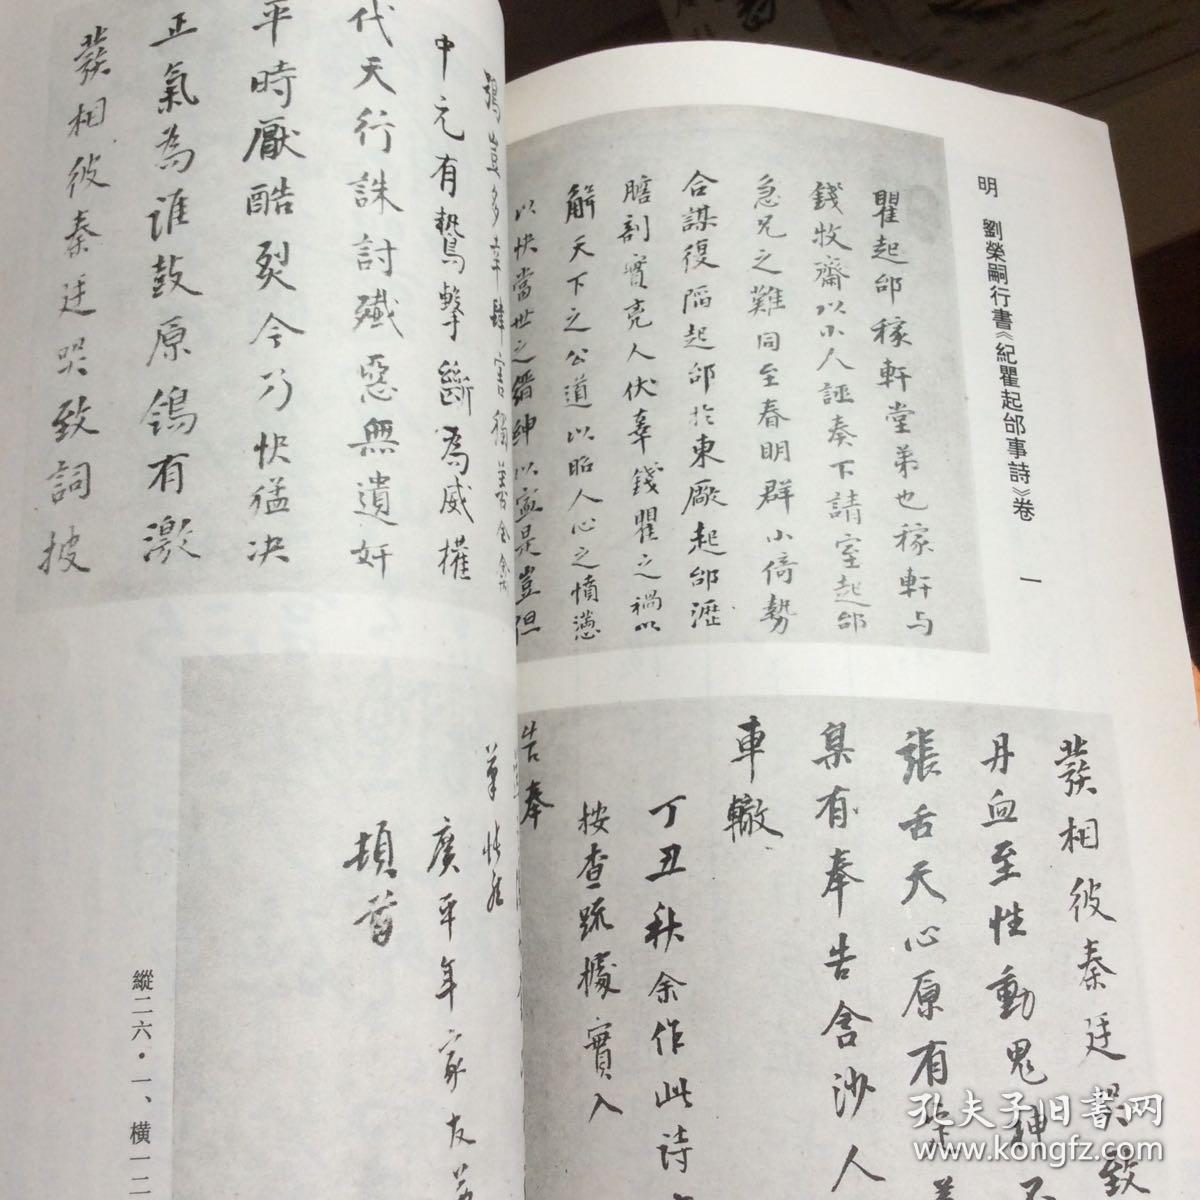 明 劉榮嗣行書《紀瞿起邰事詩》卷 一
瞿起邰稼軒堂弟也稼軒与
錢牧齋以小人誣奏下請室起邰
急兄之難同至春明群小倚勢
合謀復陷起邰於東廠起邰瀝
膽剖實克人伏辜錢瞿之禍以
解天下之公道以昭人心之憤懣
以快當世之縉紳以寧是豈但
蒺相彼秦廷哭致
丹血至性動鬼神
張舌天心原有
臬有奉告含沙人
車轍
丁丑秋余作此詩
按查踈據實入
告奉
鴞豈多辛肆害獨
中元有鷙擊斷為威權
代天行誅討殲惡無遺奸
平時厭酷烈今乃快猛决
正氣為誰鼓原鴒有激
蒺相彼秦廷哭致詞披
廣平年家友
頓首
縱二六·一、橫一二
孔夫子旧书网
www.kongfz.com